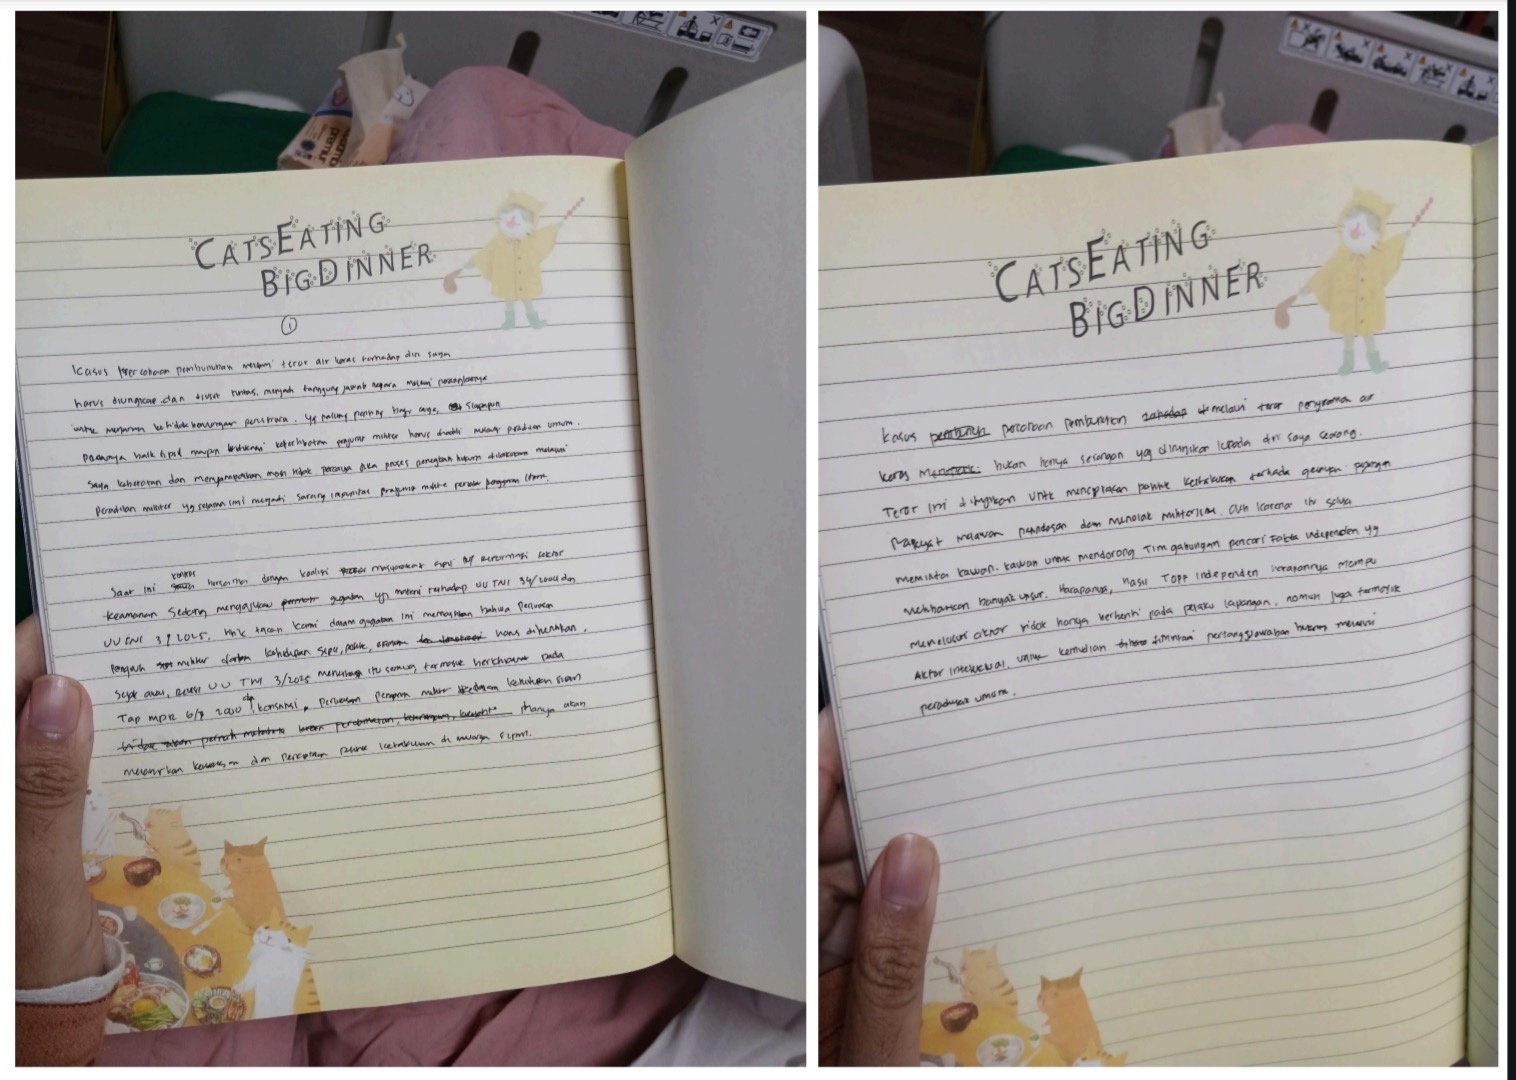 CATSEATING
BIGDINNER
1
Kasus percobaan pembunuhan melalui teror air keras terhadap diri saya
harus diungkap dan diusut tuntas, menjadi tanggung jawab negara melalui perangkatnya
untuk menjamin ketidakberulangan peristiwa. Yg paling penting bagi saya, siapapun
pelakunya baik sipil maupun keterlibatan prajurit militer harus diadili melalui peradilan umum.
Saya keberatan dan menyampaikan mosi tidak percaya jika proses penegakan hukum dilakukan melalui
peradilan militer yg selama ini menjadi sarang impunitas prajurit militer pelaku pelanggaran HAM.
Saat ini KontraS bersama dengan koalisi masyarakat sipil utk Reformasi Sektor
Keamanan sedang mengajukan gugatan uji materi terhadap UU TNI 34/2004 dan
UU TNI 3/2025. Titik tekan kami dalam gugatan ini memastikan bahwa perluasan
pengaruh militer dalam kehidupan sipil, politik, ekonomi harus dihentikan.
Sejak awal, revisi UU TNI 3/2025 itu semua termasuk berkhianat pada
Tap MPR 6/7 2000 dan konstitusi. perluasan peran militer kedalam kehidupan sipil
hanya akan
melahirkan kekerasan dan penciptaan politik ketakutan di warga sipil.
CATSEATING
BIGDINNER
Kasus percobaan pembunuhan melalui teror penyiraman air
keras bukan hanya serangan yg ditujukan kepada diri saya seorang.
Teror ini ditujukan untuk menciptakan politik ketakutan terhadap gerakan perjuangan
Rakyat melawan penindasan dan menolak militerisme. Oleh karena itu saya
meminta kawan-kawan untuk mendorong Tim gabungan pencari Fakta Independen yg
melibatkan banyak unsur. Harapannya, hasil TGPF Independen harapannya mampu
menelusuri aktor tidak hanya berhenti pada pelaku lapangan, namun juga termasuk
Aktor Intelektual, untuk kemudian dimintai pertanggungjawaban hukum melalui
peradilan umum.